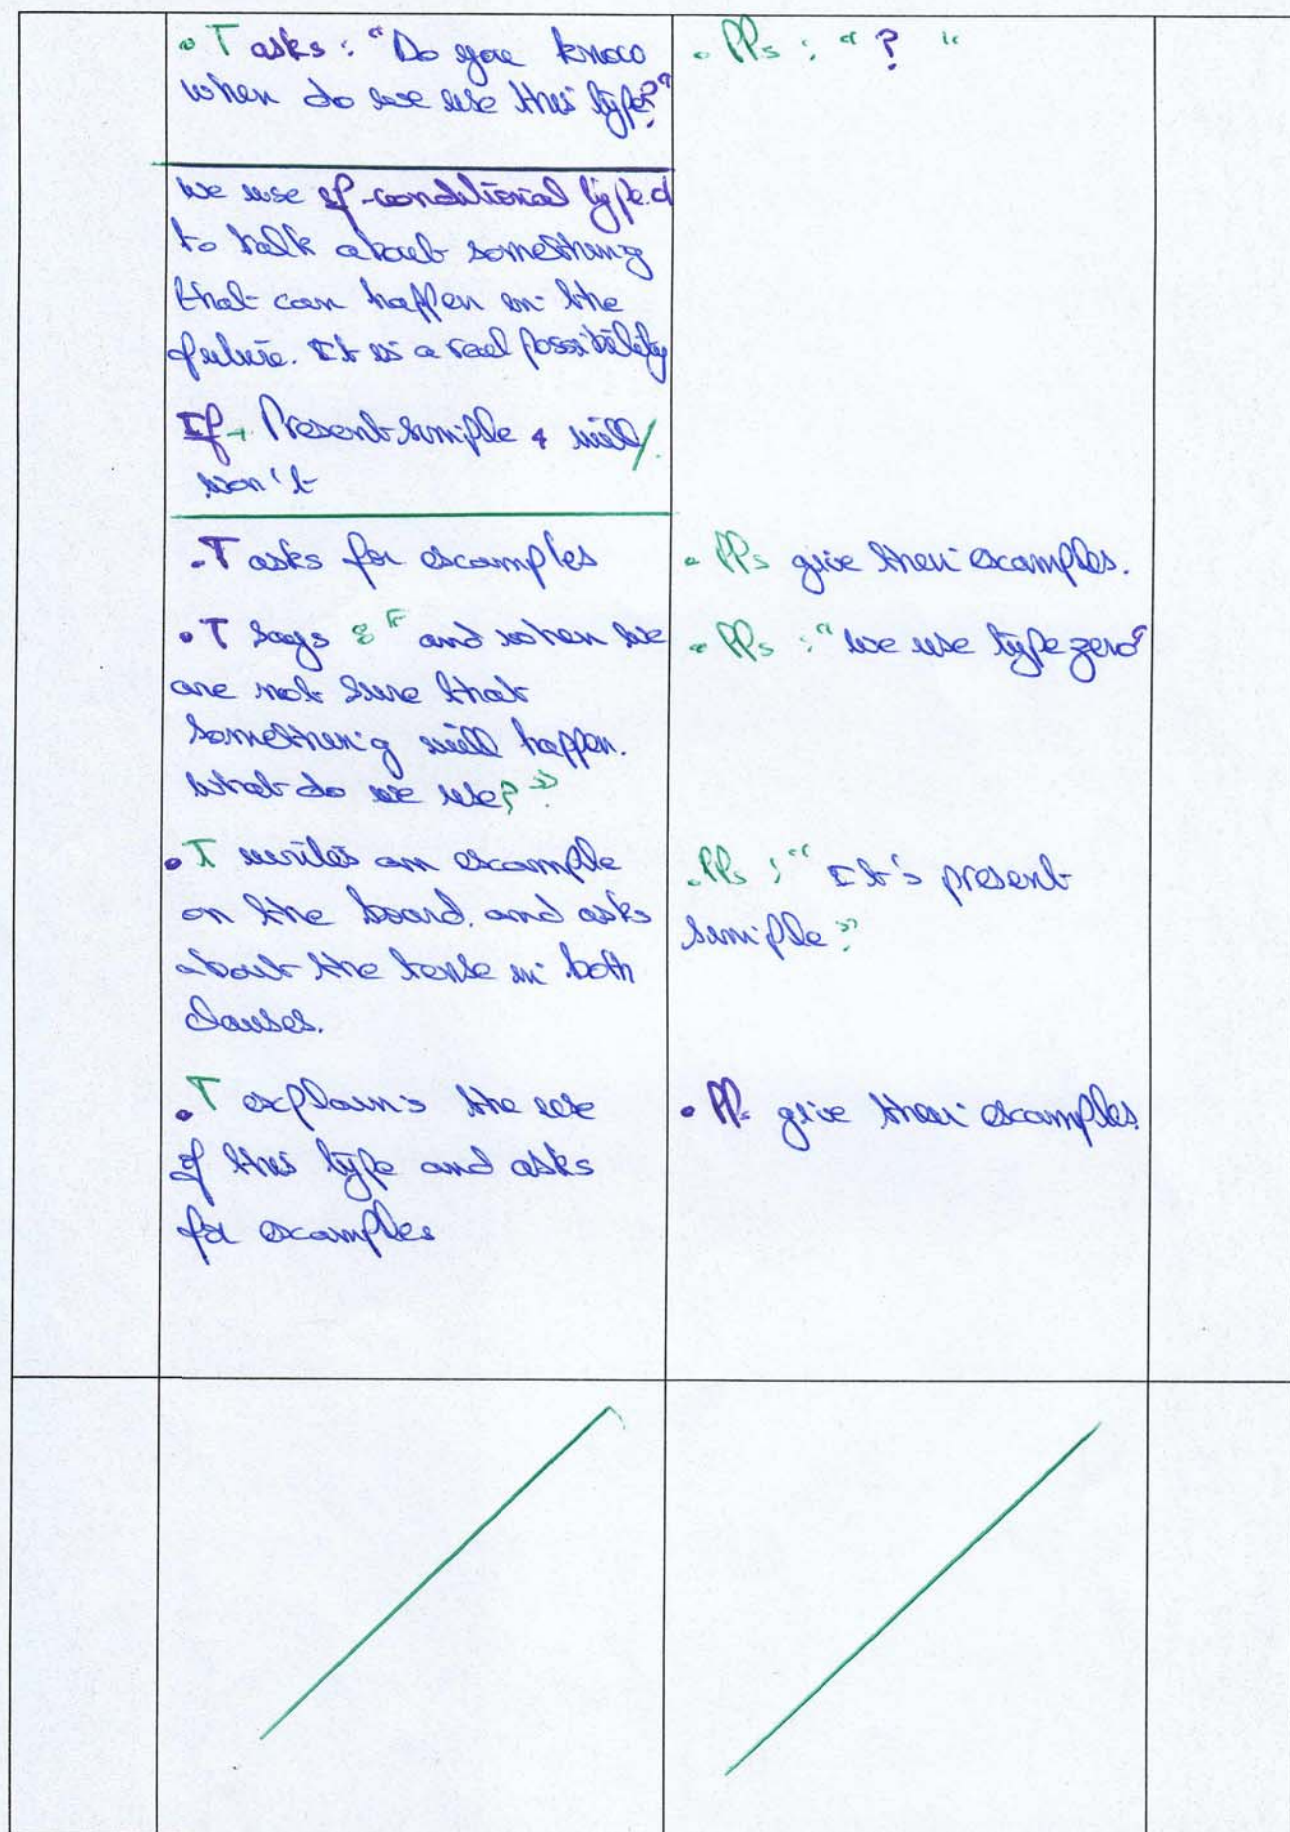 • T asks : "Do you know
when do we use this type?"
we use if-conditional type 1
to talk about something
that can happen in the
future. It is a real possibility
If + Present simple + will/
won't
• T asks for examples
• T says : " and when we
are not sure that
something will happen.
what do we use? "
• T writes an example
on the board. and asks
about the tense in both
clauses.
• T explains the use
of this type and asks
for examples
• PPs : " ? "
• PPs give their examples.
• PPs : "we use type zero"
• PPs : " It's present
simple "
• PPs give their examples